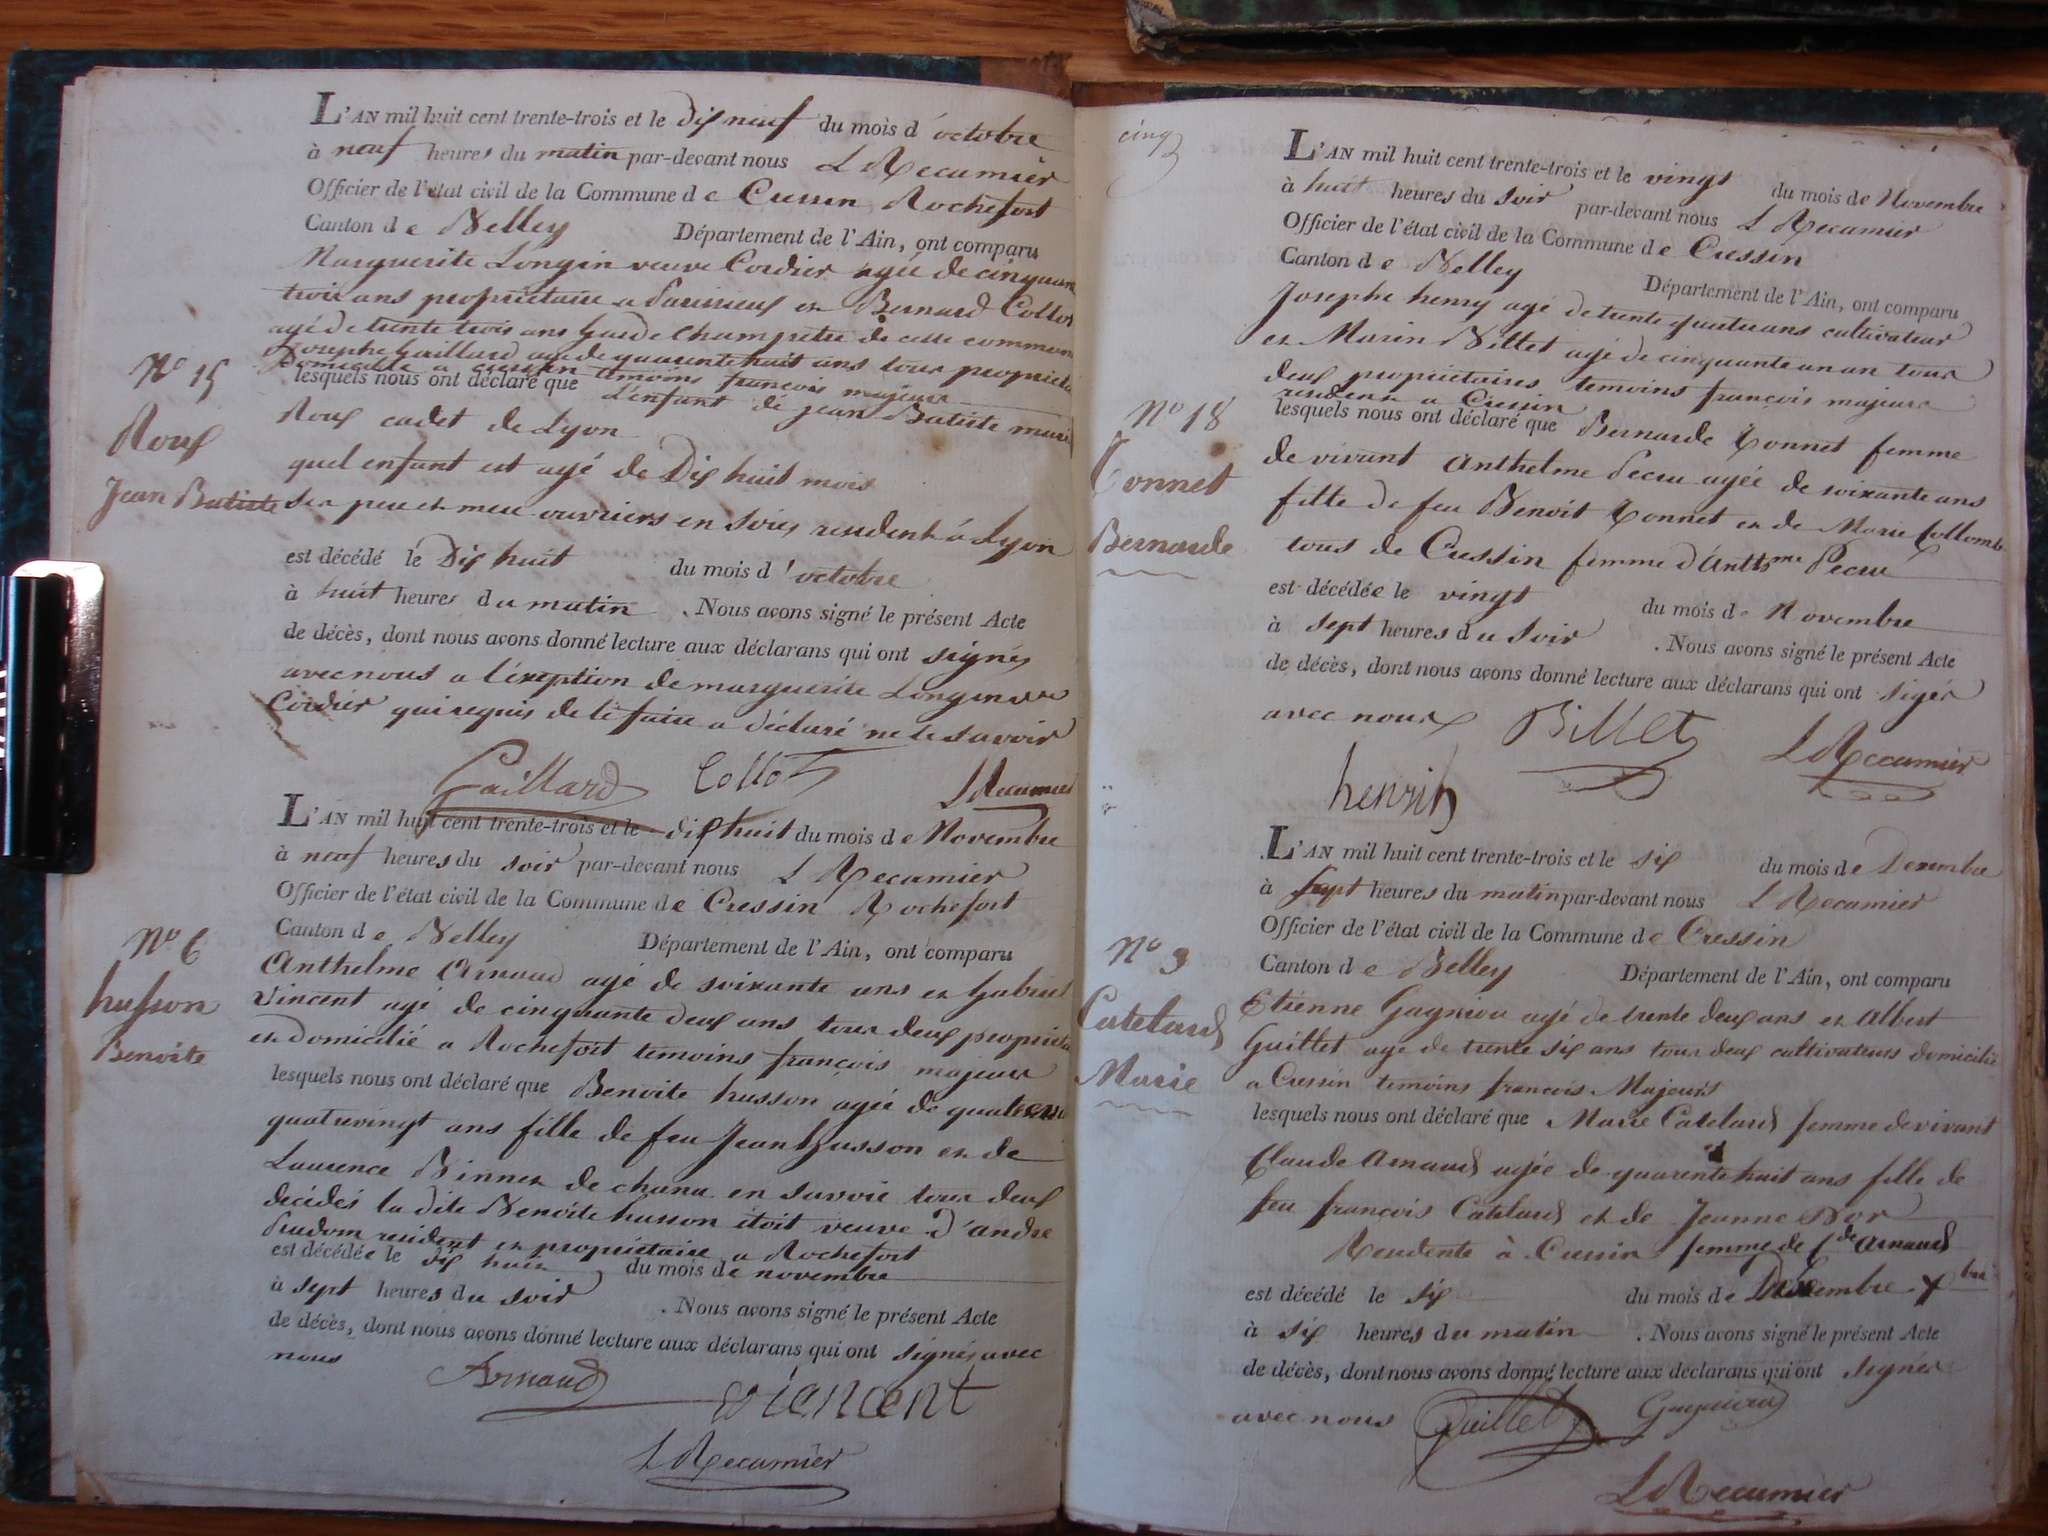 L'AN mil huit cent trente-trois et le dix neuf du mois d'octobre
à neuf heures du matin par-devant nous L Recamier
Officier de l'état civil de la Commune de Cressin Rochefort
Canton de Belley Département de l'Ain, ont comparu
Marguerite Longin veuve Cordier agée de cinquante
trois ans propriétaire a et Bernard Collot
agé de trente trois ans garde champetre de cette commune
Joseph Gaillard agé de quarante huit ans tous propriétaires
Domicilié a Cressin temoins francois majeurs
lesquels nous ont déclaré que L'enfant de jean Batiste marie
N° 15
Roux
Jean Batiste
Roux cadet de Lyon
quel enfant est agé de Dix huit mois
ses peu et meu ouvriers en soies resident à Lyon
est décédé le Dix huit du mois d'octobre
à huit heures du matin. Nous avons signé le présent Acte
de décès, dont nous avons donné lecture aux déclarans qui ont signés
avec nous a l'exeption de marguerite Longin vve
Cordier qui requis de le faire a déclaré ne le savoir
Gaillard Collot L Recamier
L'AN mil huit cent trente-trois et le dix huit du mois de Novembre
à neuf heures du soir par-devant nous L Recamier
Officier de l'état civil de la Commune de Cressin Rochefort
Canton de Belley Département de l'Ain, ont comparu
N° 6
husson
Benoite
Anthelme Arnaud agé de soixante ans et Gabriel
Vincent agé de cinquante deux ans tous deux propriétaires
et domicilié a Rochefort temoins françois majeurs
lesquels nous ont déclaré que Benoite husson agée de
quatrevingt ans fille de feu Jean husson et de
Laurence Binner de chana en savoie tous deux
decédés la dite Benoite husson étoit veuve d'andre
Prudom resident et propriétaire a Rochefort
est décédée le dix huit du mois de novembre
à sept heures du soir. Nous avons signé le présent Acte
de décès, dont nous avons donné lecture aux déclarans qui ont signés avec
nous Arnaud viencent
L Recamier
cinq
L'AN mil huit cent trente-trois et le vingt du mois de Novembre
à huit heures du soir par-devant nous L Recamier
Officier de l'état civil de la Commune de Cressin
Canton de Belley Département de l'Ain, ont comparu
Josephe henry agé de trente quatre ans cultivateur
et Marin Billet agé de cinquante un an tous
deux propriétaires temoins francois majeurs
resident a Cressin
N° 18
Connet
Bernarde
lesquels nous ont déclaré que Bernarde Connet femme
de vivant Anthelme Pecru agée de soixante ans
fille de feu Benoit Connet et de Marie Collomb
tous de Cressin femme d'Anthme Pecru
est décédée le vingt du mois de Novembre
à sept heures du soir. Nous avons signé le présent Acte
de décès, dont nous avons donné lecture aux déclarans qui ont signér
avec nous Billet L Recamier
henrih
L'AN mil huit cent trente-trois et le six du mois de Decembre
à sept heures du matin par-devant nous L Recamier
Officier de l'état civil de la Commune de Cressin
Canton de Belley Département de l'Ain, ont comparu
N° 9
Catelard
Marie
Etiénne Gagnieu agé de trente deux ans et Albert
Guillet agé de trente six ans tous deux cultivateurs domicilié
a Cressin temoins francois Majeurs
lesquels nous ont déclaré que Marie Catelard femme de vivant
Claude Arnaud agée de quarente huit ans fille de
feu françois Catelard et de Jeanne Dor
Residente à Cressin femme de Cde Arnaud
est décédé le six du mois de Décembre Xbre
à six heures du matin. Nous avons signé le présent Acte
de décès, dont nous avons donné lecture aux déclarans qui ont signés
avec nous Guillet
L Recamier